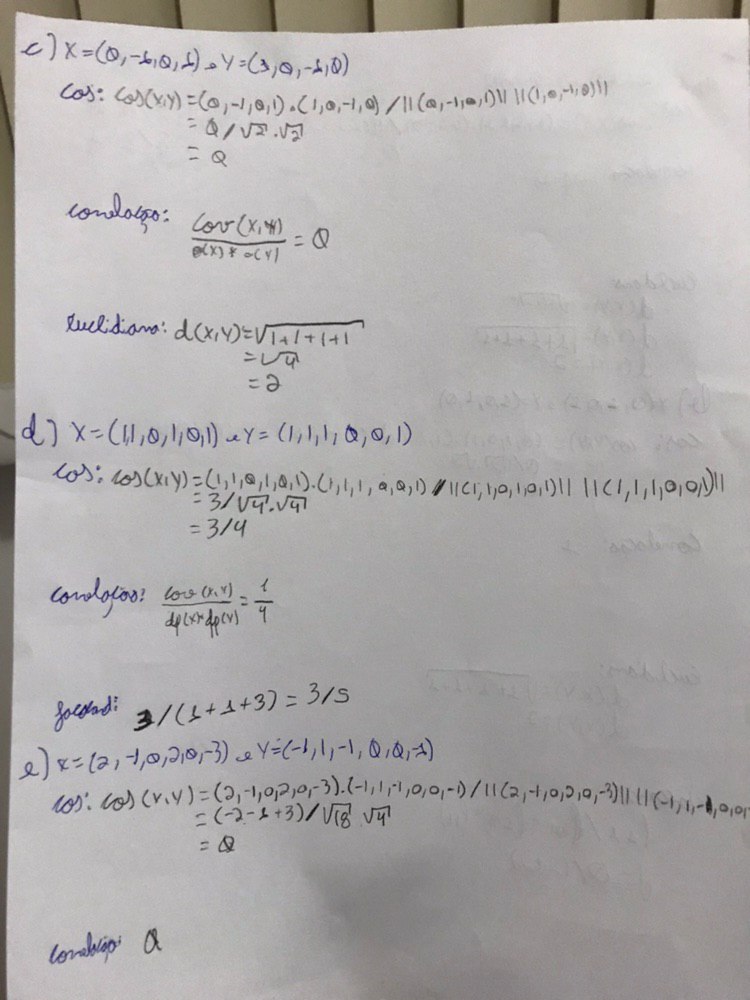 c) X=(0,-1,0,1) e Y=(1,0,-1,0)
Cos: Cos(X,Y)=(0,-1,0,1).(1,0,-1,0) /||(0,-1,0,1)|| ||(1,0,-1,0)||
= 0/√2.√2
= 0
Correlação: Cov(X,Y)/σ(X)*σ(Y) = 0
Euclidiana: d(X,Y)=√1+1+1+1
=√4
= 2
d) X=(1,1,0,1,0,1) e Y=(1,1,1,0,0,1)
Cos: Cos(X,Y)=(1,1,0,1,0,1).(1,1,1,0,0,1) /||(1,1,0,1,0,1)|| ||(1,1,1,0,0,1)||
= 3/√4.√4
= 3/4
Correlação: cov(X,Y)/dp(X)*dp(Y) = 1/4
Jaccard: 3/(1+1+3) = 3/5
e) X=(2,-1,0,2,0,-3) e Y=(-1,1,-1,0,0,-1)
Cos: Cos(X,Y)=(2,-1,0,2,0,-3).(-1,1,-1,0,0,-1)/||(2,-1,0,2,0,-3)|| ||(-1,1,-1,0,0,
= (-2-1+3)/√18 √4
= 0
Correlação: 0